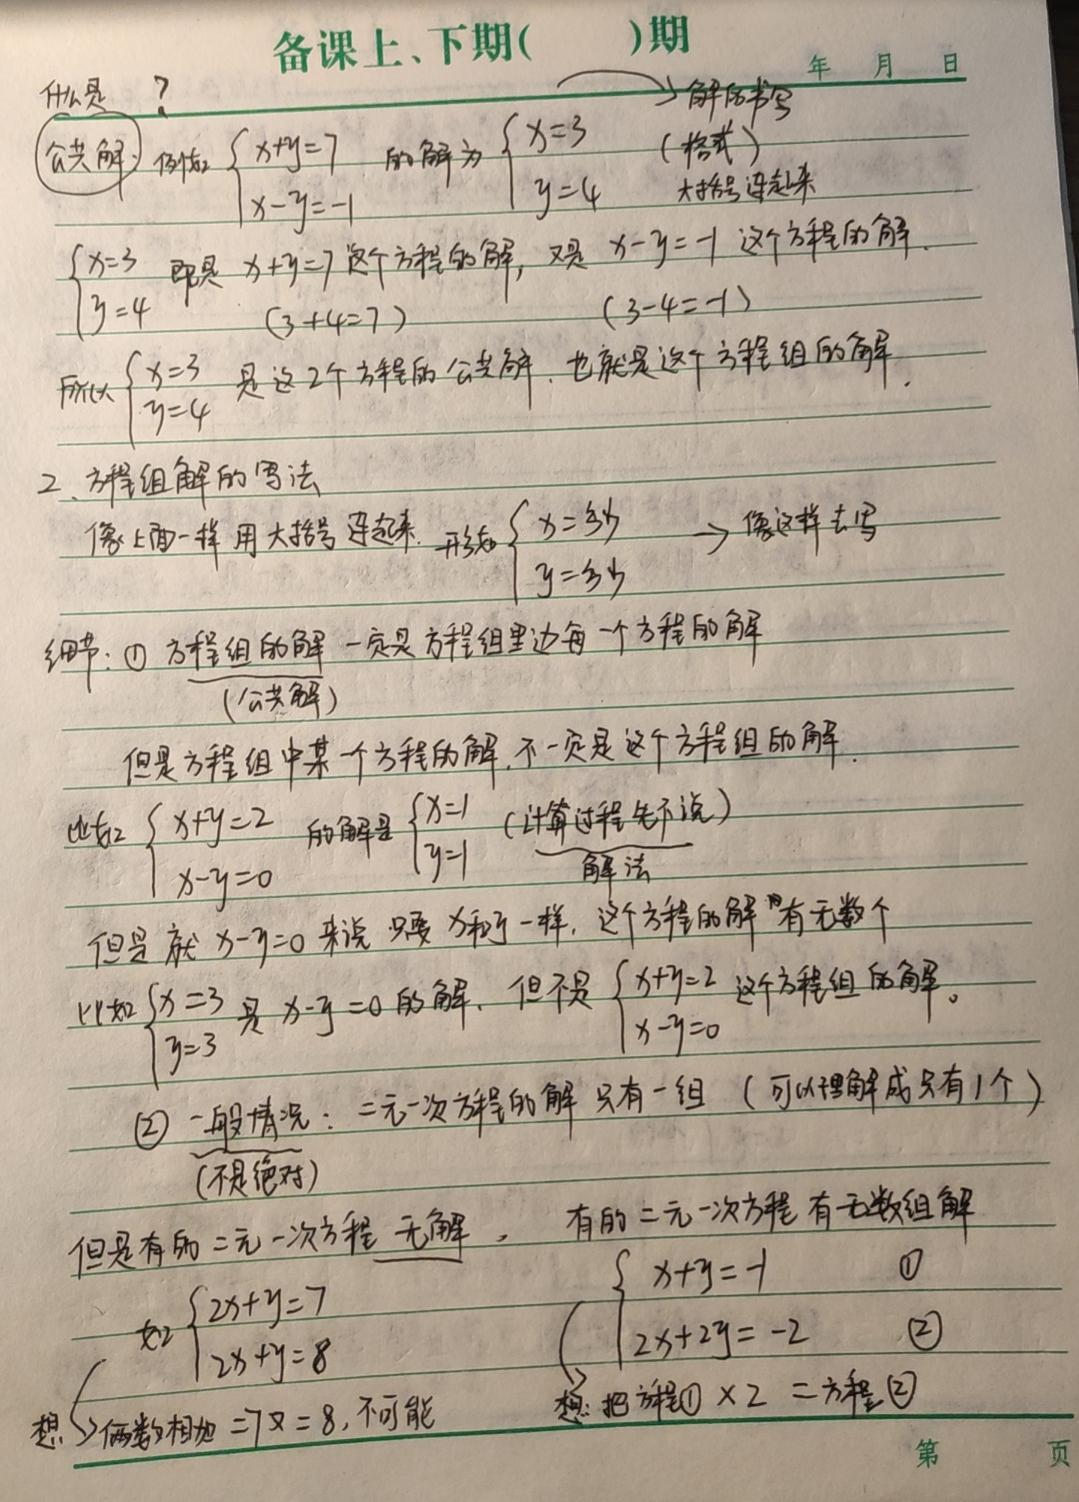 备课上、下期(  )期
年 月 日
什么是 ?
→解的书写
公共解: 例如 { x+y=7 的解为 { x=3 (格式)
x-y=-1 y=4 大括号连起来
{ x=3 即是 x+y=7 这个方程的解, 又是 x-y=-1 这个方程的解.
y=4 (3+4=7) (3-4=-1)
所以 { x=3 是这2个方程的公共解. 也就是这个方程组的解.
y=4
2、方程组解的写法
像上面一样用大括号连起来. 形如 { x=多少 → 像这样去写
y=多少
细节: ① 方程组的解一定是方程组里边每一个方程的解
(公共解)
但是方程组中某一个方程的解,不一定是这个方程组的解.
比如 { x+y=2 的解是 { x=1 (计算过程先不说)
x-y=0 y=1 解法
但是就 x-y=0 来说 只要 x和y一样, 这个方程的解有无数个
比如 { x=3 是 x-y=0 的解. 但不是 { x+y=2 这个方程组的解。
y=3 x-y=0
② 一般情况: 二元一次方程的解 只有一组 (可以理解成只有1个)
(不是绝对)
但是有的二元一次方程 无解, 有的二元一次方程有无数组解
如 { 2x+y=7 { x+y=-1 ①
2x+y=8 2x+2y=-2 ②
想: 俩数相加 =7又=8, 不可能 想: 把方程①×2 =方程②
第 页